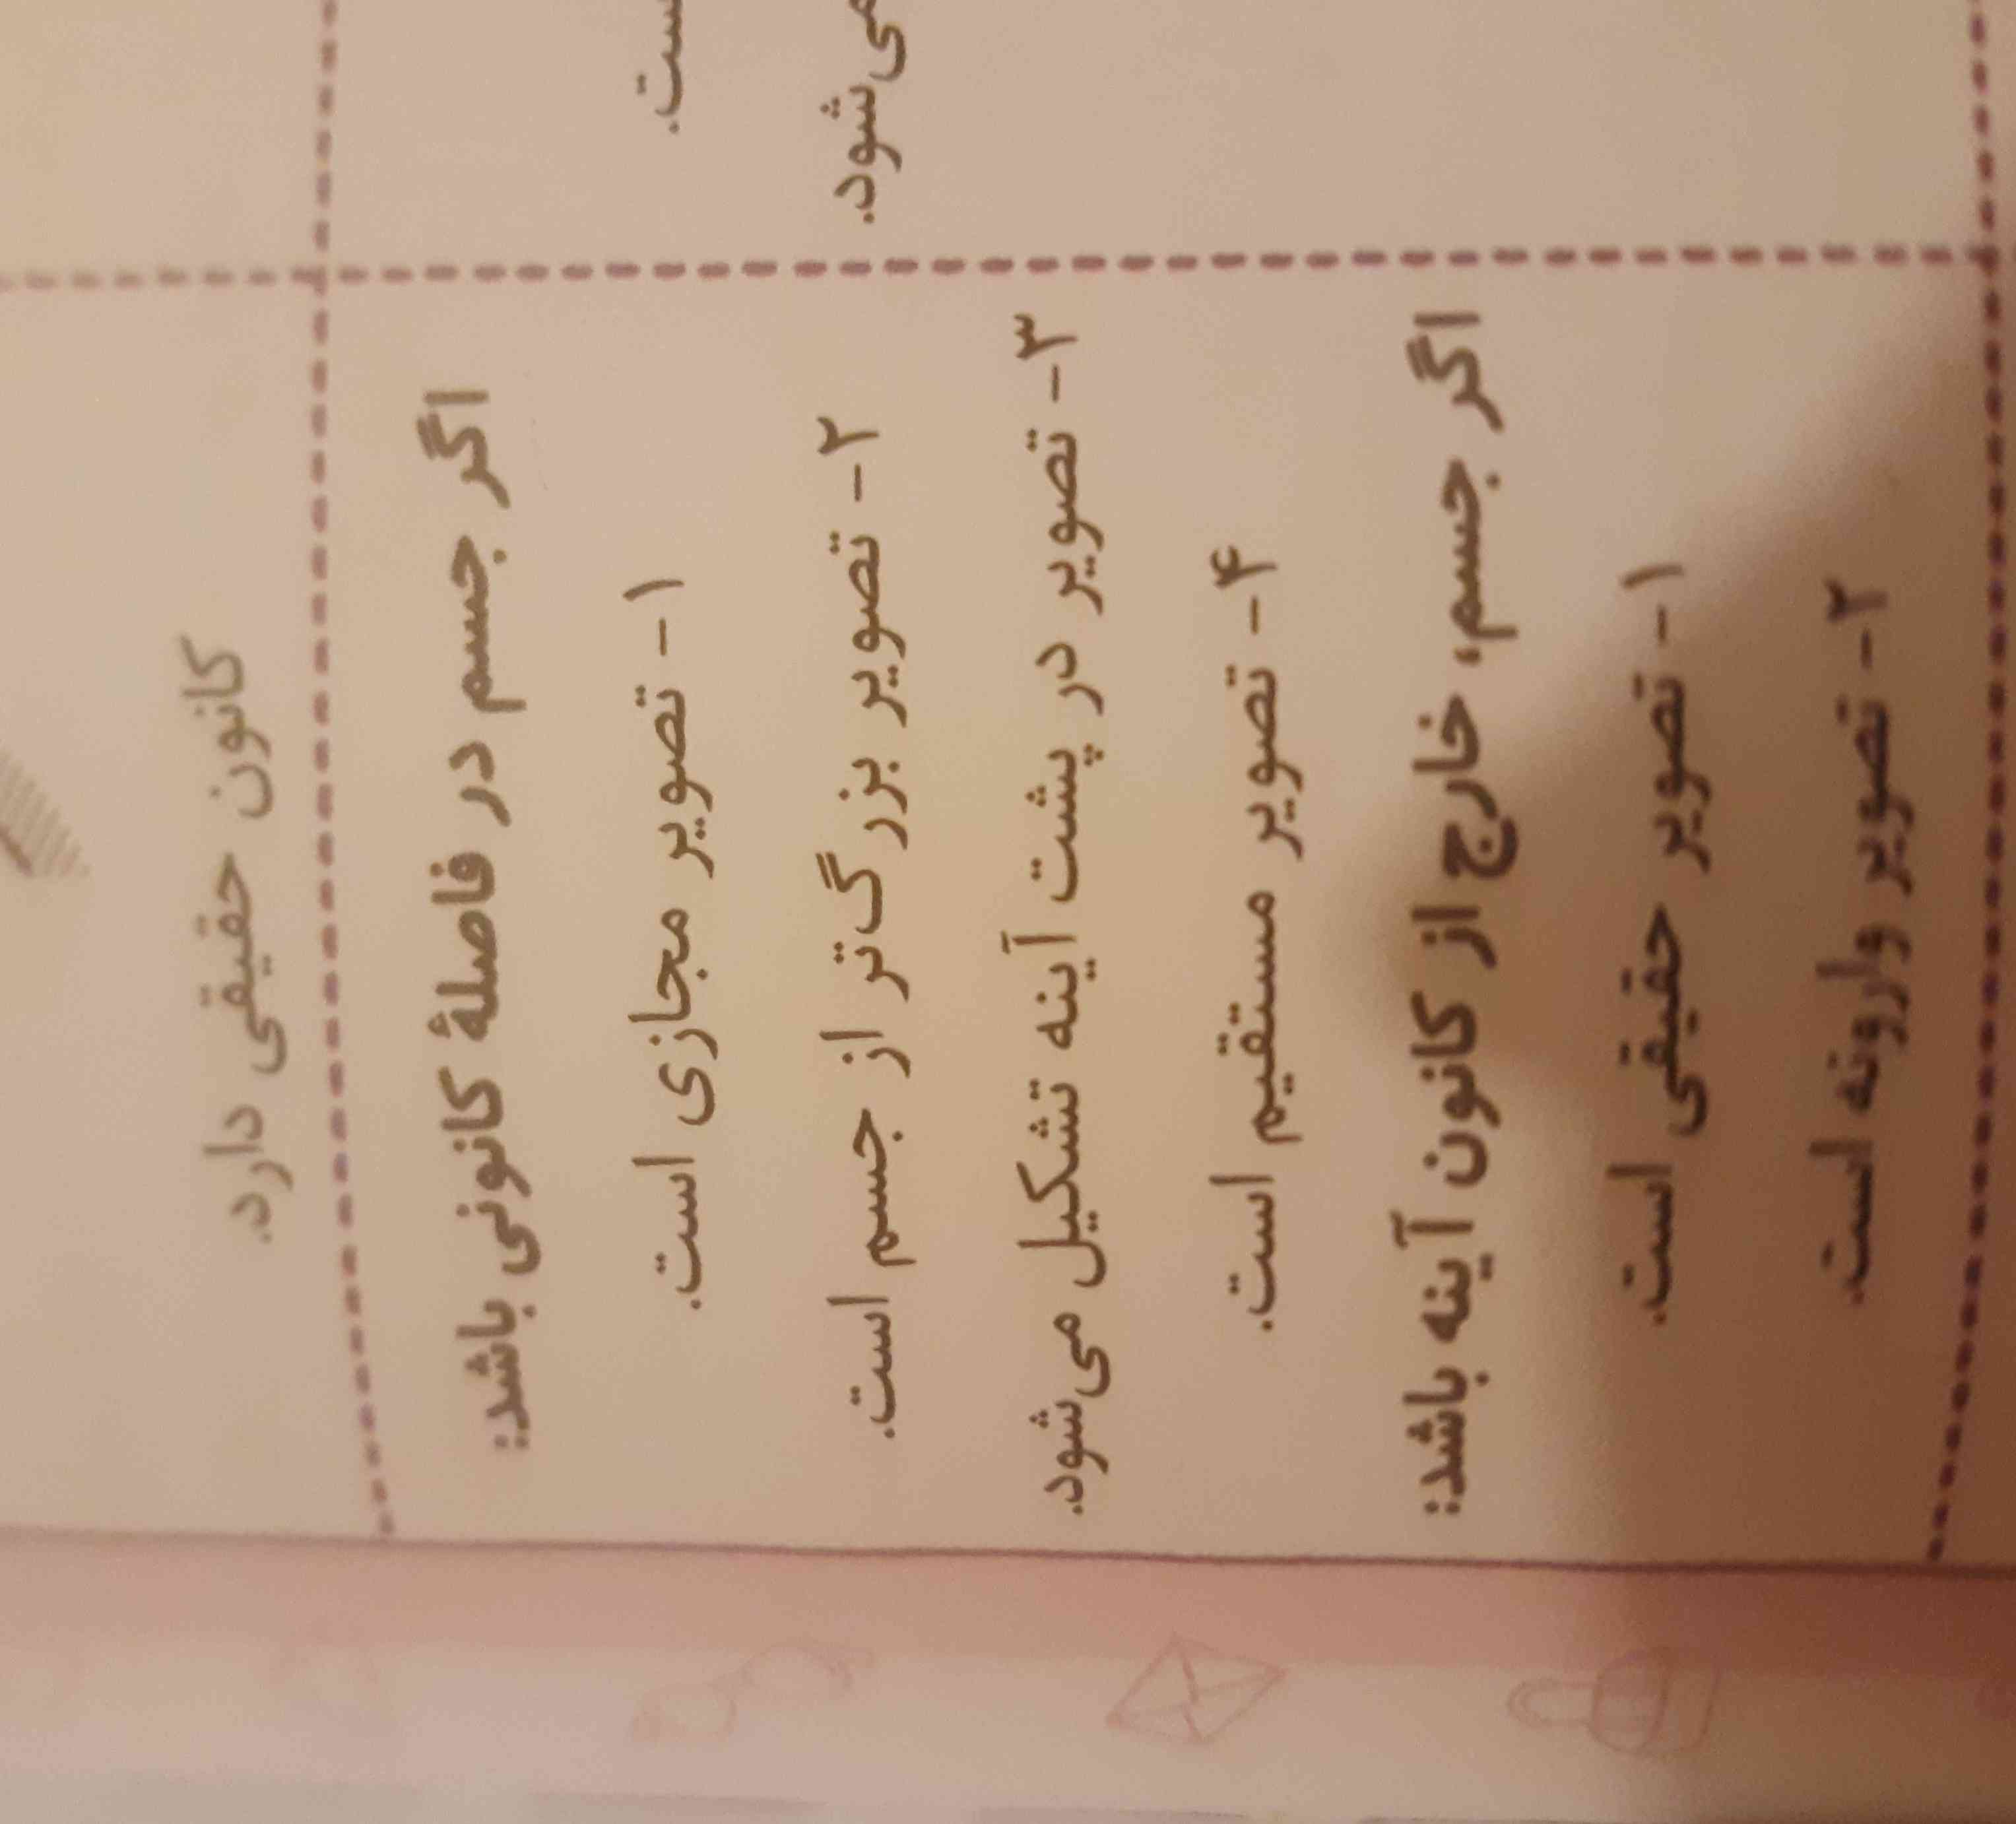 کانون حقیقی دارد.
اگر جسم در فاصلهٔ کانونی باشد:
۱- تصویر مجازی است.
۲- تصویر بزرگ‌تر از جسم است.
۳- تصویر در پشت آینه تشکیل می‌شود.
۴- تصویر مستقیم است.
اگر جسم، خارج از کانون آینه باشد:
۱- تصویر حقیقی است.
۲- تصویر وارونه است.
می‌شود.